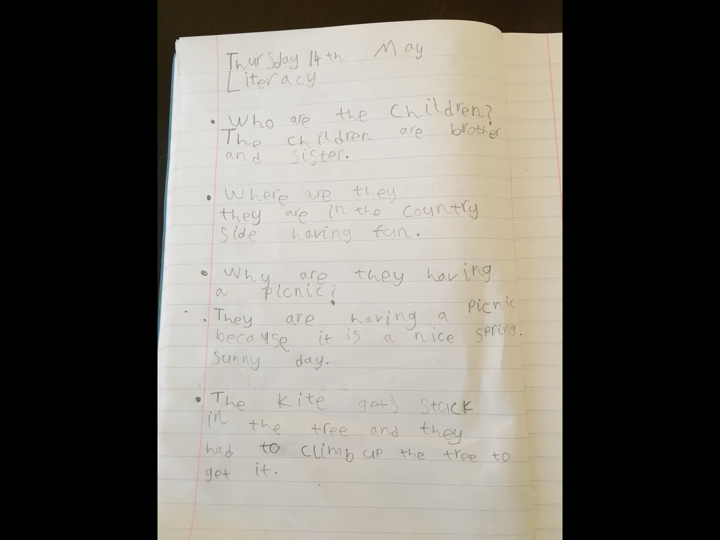 Thursday 14th May
Literacy
• Who are the children?
The children are brother
and sister.
• Where are they
they are in the country
side having fun.
• Why are they having
a picnic?
. They are having a picnic
because it is a nice spring.
sunny day.
• The Kite gets stuck
in the tree and they
had to climb up the tree to
get it.